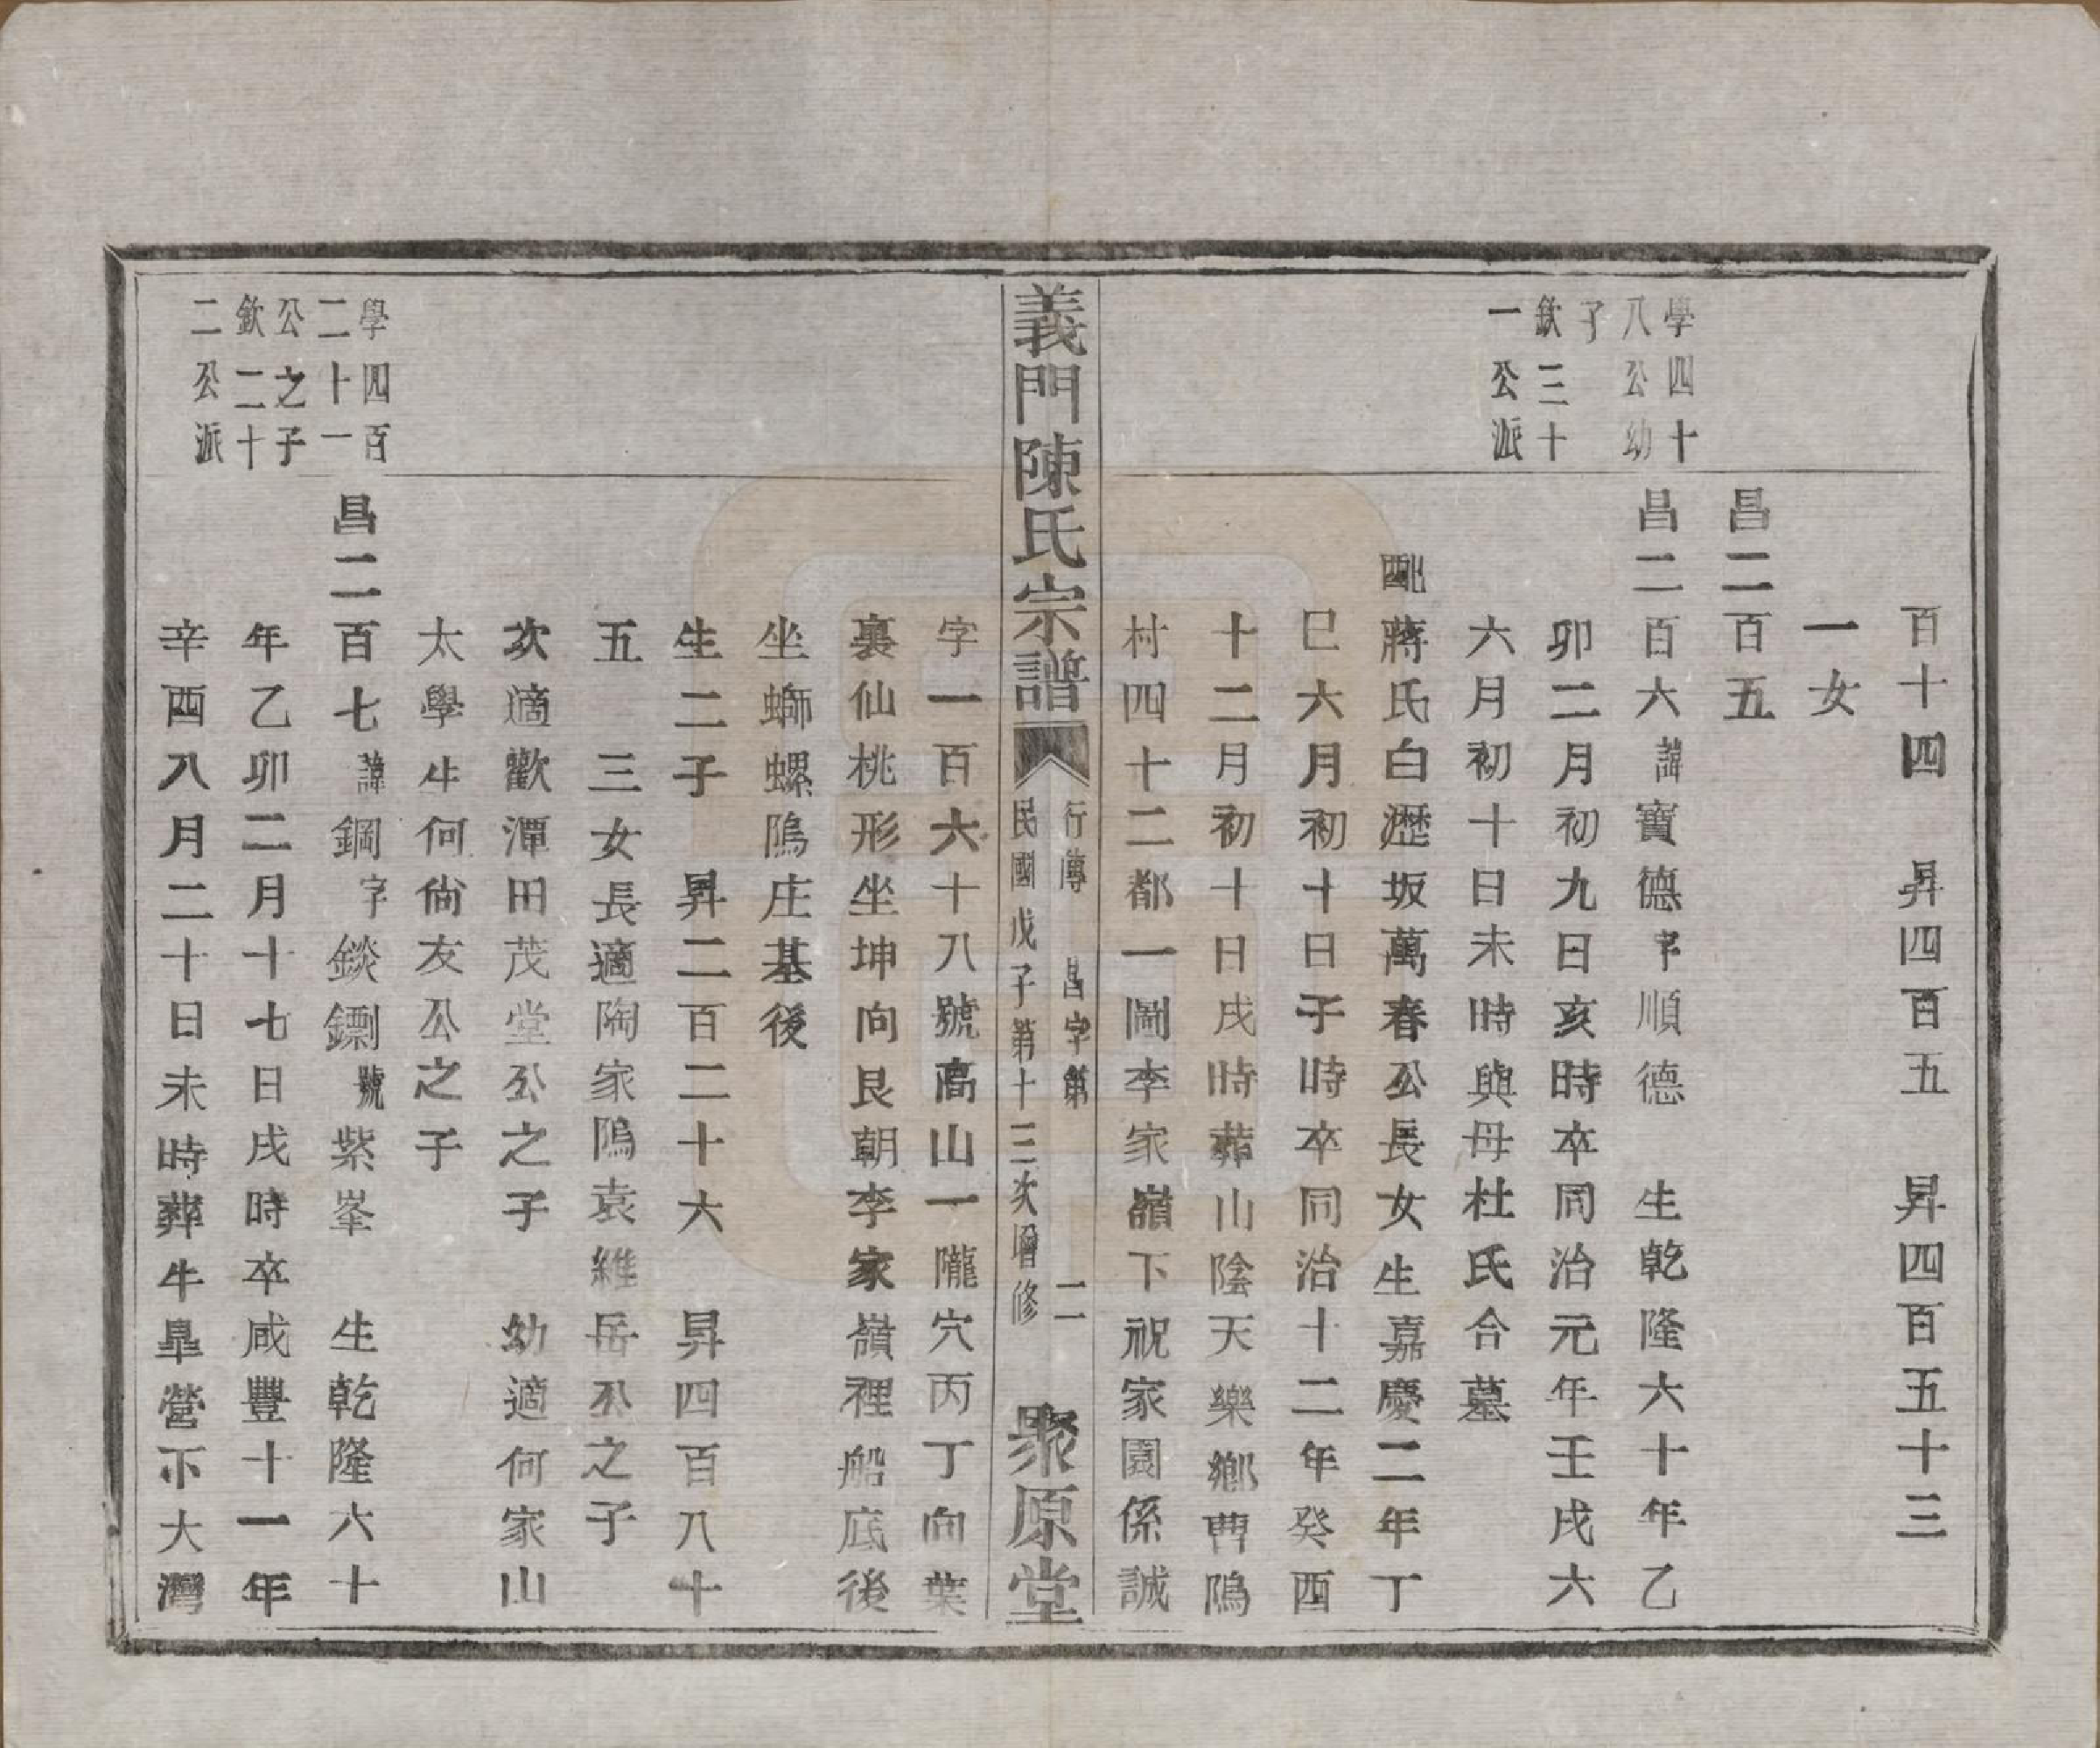 百十四　昇四百五　昇四百五十三
一女
昌二百五
學四十
八公幼
子
欽三十
一公派
昌二百六諱寶德字順德　生乾隆六十年乙
卯二月初九日亥時卒同治元年壬戌六
六月初十日未時與母杜氏合墓
配蔣氏白瀝坂萬春公長女生嘉慶二年丁
巳六月初十日子時卒同治十二年癸酉
十二月初十日戌時葬山陰天樂鄉曹隖
村四十二都一圖李家嶺下祝家園係誠
義門陳氏宗譜
行傳　昌字第　二
民國戊子第十三次增修
聚原堂
字一百六十八號高山一隴穴丙丁向葉
裏仙桃形坐坤向艮朝李家嶺裡船底後
坐螄螺隖庄基後
生二子　昇二百二十六　昇四百八十
五　三女長適陶家隖袁維岳公之子
次適歡潭田茂堂公之子　幼適何家山
太學生何尙友公之子
學四百
二十一
公之子
欽二十
二公派
昌二百七諱鋼字錟鏍號紫峯　生乾隆六十
年乙卯二月十七日戌時卒咸豐十一年
辛酉八月二十日未時葬牛皐營下大灣